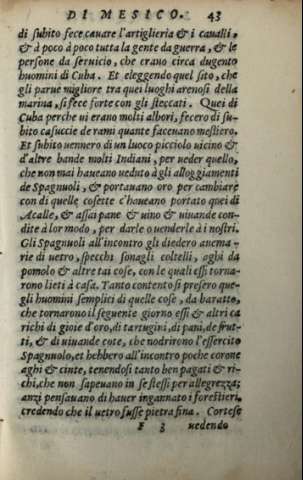 DI MESICO. 43
di subito fece cauare l'artiglieria & i caualli,
& à poco à poco tutta la gente da guerra, & le
persone da seruicio, che erano circa dugento
huomini di Cuba. Et eleggendo quel sito, che
gli parue migliore tra quei luoghi arenosi della
marina, si fece forte con gli steccati. Quei di
Cuba perche ui erano molti albori, fecero di su-
bito casuccie de rami quante faceuano mestiero.
Et subito uennero di un luoco picciolo uicino &
d'altre bande molti Indiani, per ueder quello,
che non mai haueano ueduto à gli alloggiamenti
de Spagnuoli, & portauano oro per cambiare
con di quelle cosette c'haueano portato quei di
Acalle, & assai pane & uino & uiuande con-
dite à lor modo, per darle o uenderle à i nostri.
Gli Spagnuoli all'incontro gli diedero auema-
rie di uetro, specchi sonagli coltelli, aghi da
pomolo & altre tai cose, con le quali essi torna-
rono lieti à casa. Tanto contento si presero que-
gli huomini semplici di quelle cose, da baratto,
che tornarono il seguente giorno essi & altri ca
richi di gioie d'oro, di tartugini, di pani, de frut-
ti, & di uiuande cote, che nodrirono l'essercito
Spagnuolo, et hebbero all'incontro poche corone
aghi & cinte, tenendosi tanto ben pagati & ri-
chi, che non sapeuano in se stessi per allegrezza;
anzi pensauano di hauer ingannato i forestieri,
credendo che il uetro fusse pietra fina. Cortese
F 3 uedendo